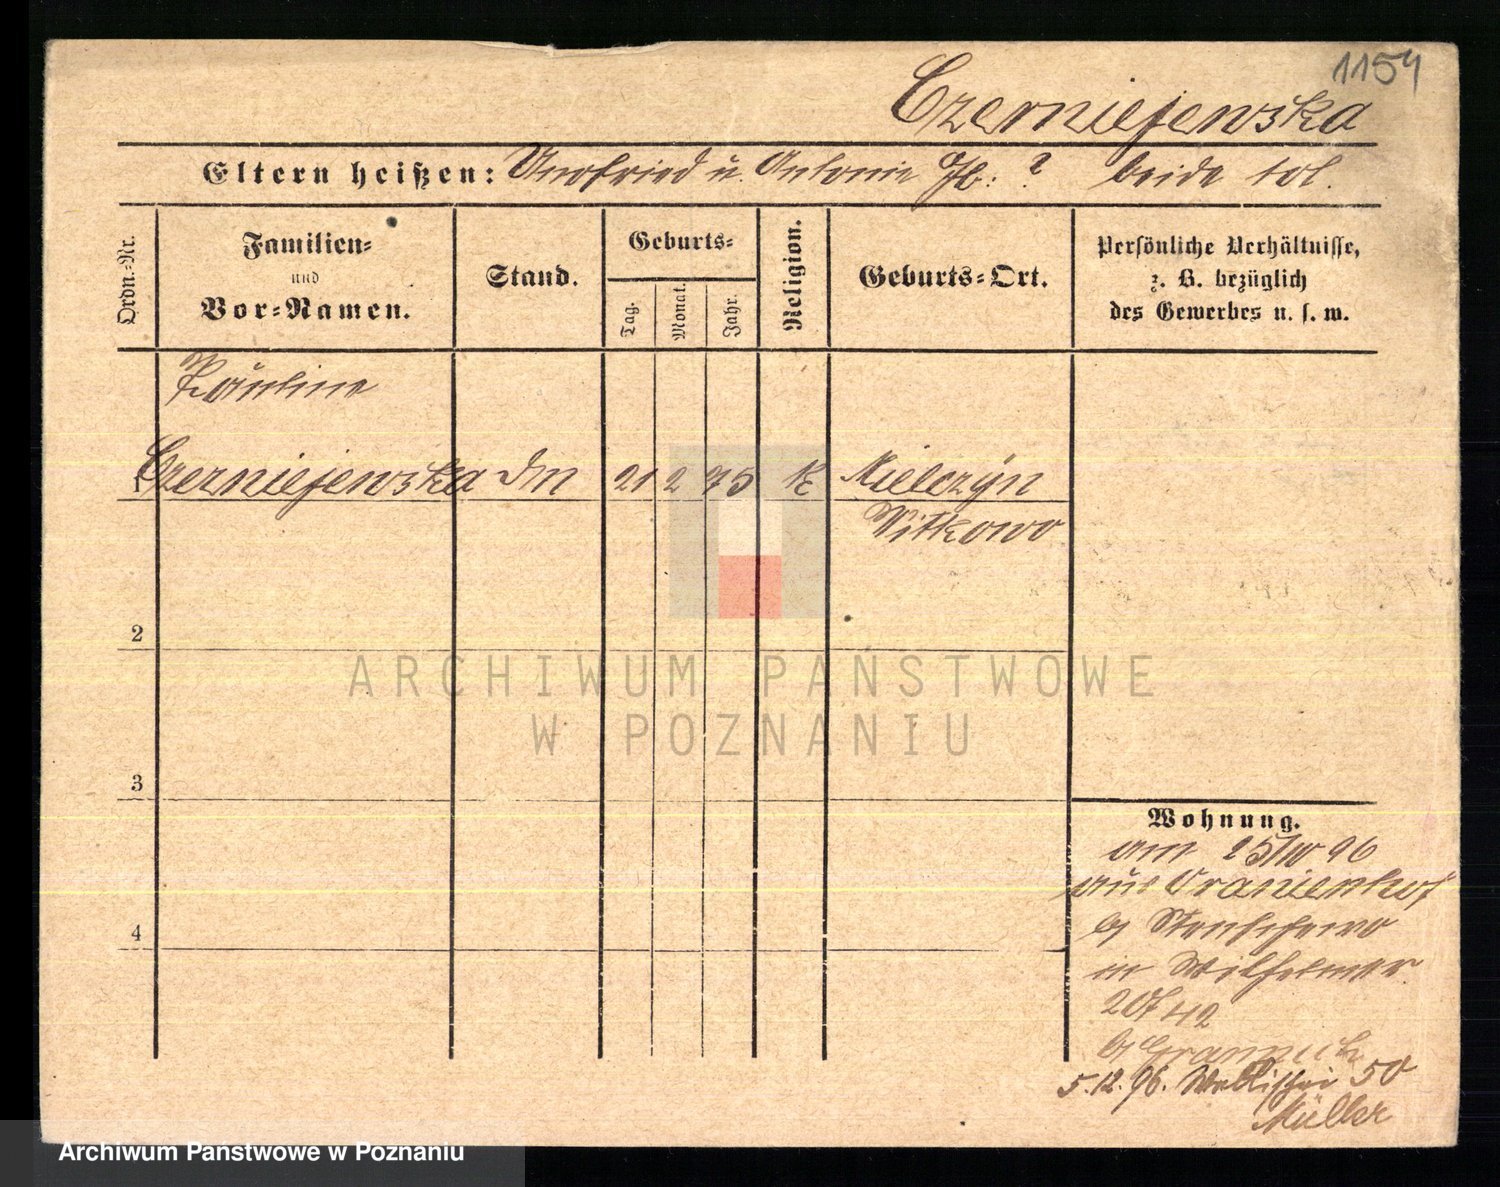 1154
Czerniejewska
Eltern heißen: Onofried u. Antonie Gb: ? beide tot.
Ordn.-Nr.
Familien-
und
Vor-Namen.
Stand.
Geburts-
Tag.
Monat.
Jahr.
Religion.
Geburts-Ort.
Persönliche Verhältnisse,
z. B. bezüglich
des Gewerbes u. s. w.
Pauline
1 Czerniejewska Dm 21 2 75 k Mielczyn
Witkowo
2
3
4
Wohnung.
am 25/IV 96
aus Oranienhof
b/ Stenschewo
in Wilhelmstr
20/42
b/
5.12.96. Wallischei 50
Müller
ARCHIWUM PAŃSTWOWE
W POZNANIU
Archiwum Państwowe w Poznaniu